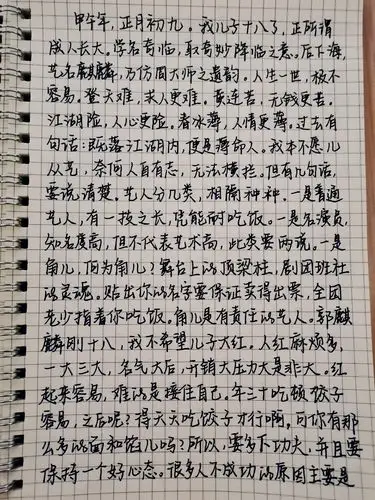 甲午年，正月初九。我儿子十八了，正所谓
成人长大。学名奇临，取奇妙降临之意。后下海，
艺名麒麟，乃仿周大师之遗韵。人生一世，极不
容易。登天难，求人更难。黄连苦，无钱更苦。
江湖险，人心更险。春冰薄，人情更薄。过去有
句话：既落江湖内，便是薄命人。我本不愿儿
从艺，奈何人自有志，无法横拦。但有几句话，
要说清楚。艺人分几类，相隔种种。一是普通
艺人，有一技之长，凭能耐吃饭。一是名演员，
知名度高，但不代表艺术高，此类要两说。一是
角儿，何为角儿？舞台上的顶梁柱，剧团班社
的灵魂。贴出你的名字要保证卖得出票，全团
老少指着你吃饭。角儿是有责任的艺人。郭麒
麟刚十八，我不希望儿子大红。人红麻烦多，
一大三大，名气大后，开销大压力大是非大。红
起来容易，难的是接住自己。年三十吃顿饺子
容易，之后呢？得天天吃饺子才行啊。可你有那
么多的面和馅儿吗？所以，要多下功夫，并且要
保持一个好心态。很多人不成功的原因主要是